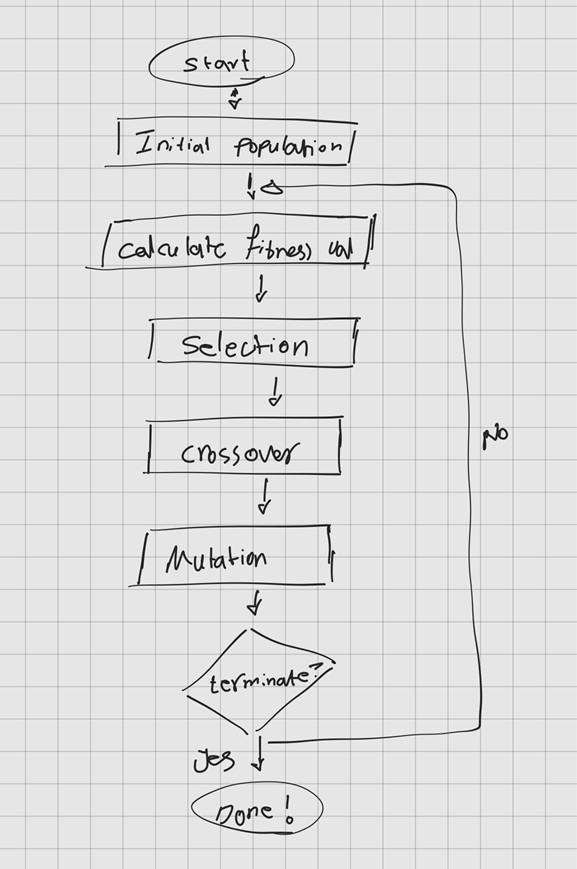 Start
Initial population
Calculate fitness val
Selection
Crossover
No
Mutation
terminate?
Yes
Done!